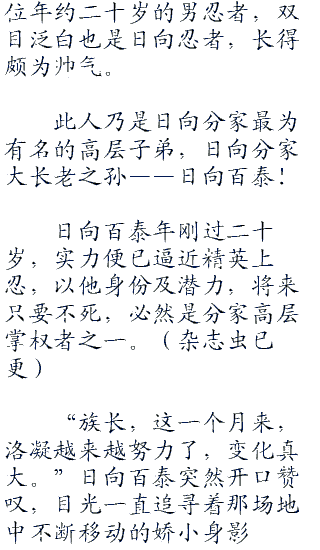 位年约二十岁的男忍者，双
目泛白也是日向忍者，长得
颇为帅气。
此人乃是日向分家最为
有名的高层子弟，日向分家
大长老之孙——日向百泰！
日向百泰年刚过二十
岁，实力便已逼近精英上
忍，以他身份及潜力，将来
只要不死，必然是分家高层
掌权者之一。（杂志虫已
更）
“族长，这一个月来，
洛凝越来越努力了，变化真
大。”日向百泰突然开口赞
叹，目光一直追寻着那场地
中不断移动的娇小身影